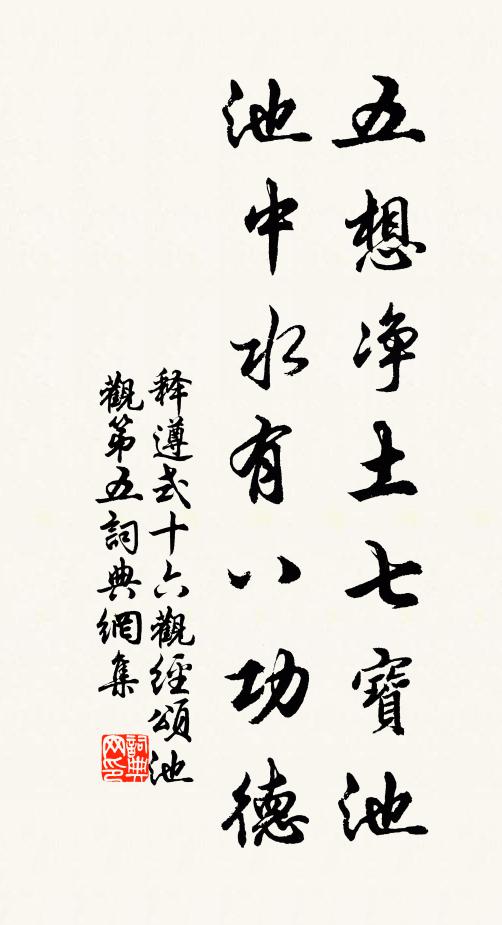 五想净土七寶池
池中水有八功德
释遵式十六觀經頌池
觀第五詞典網集
詞典
网印